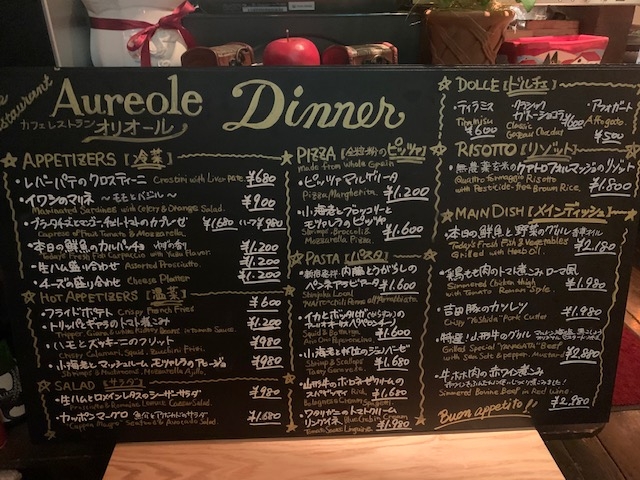 Restaurant
Aureole
カフェレストラン オリオール
Dinner
APPETIZERS【冷菜】
・レバーパテのクロスティーニ Crostini with Liver pate ¥680
・イワシのマリネ ¥900
Marinated Sardines with Celery & Orange Salad.
¥1,680 ハーフ¥980
Caprese of Fruit Tomato & Mozzarella.
・本日の鮮魚のカルパッチョ ¥1,200
Today's Fresh Fish Carpaccio with Yuzu Flavor.
・生ハム盛り合わせ Assorted Prosciutto. ¥1,200
・チーズの盛り合せ Cheese Platter ¥1,200
HOT APPETIZERS【温菜】
・フライドポテト Crispy French Fried ¥600
・トリッパとギアラのトマト煮込み ¥980
・ハモとズッキーニのフリット ¥980
・小海老とマッシュルーム、モッツァレラのアヒージョ ¥980
SALAD【サラダ】
・生ハムとロメインレタスのシーザーサラダ ¥980
Prosciutto & Romaine Lettuce Caesar Salad
・カッポンマーグロ 魚介とアボカドのサラダ ¥1,680
"Cappon Magro" Seafood & Avocado Salad.
PIZZA【全粒粉のピッツァ】
made from Whole Grain
・ピッツァ マルゲリータ
Pizza/Margherita. ¥1,200
・小海老とブロッコリーと
モッツァレラのピッツァ ¥1,600
Shrimp, Broccoli &
Mozzarella Pizza.
PASTA【パスタ】
・新宿産 内藤とうがらしの
ペンネアラビアータ ¥1,200
¥1,600
・小海老と帆立のジェノベーゼ ¥1,600
Shrimp & Scallop
・山形牛のボロネーゼクリームの
¥1,680
・ワタリガニのトマトクリーム
リングイネ ¥1,980
Tomato Sauce Linguine
DOLCE【ドルチェ】
・ティラミス
Tiramisu
¥600
・クラシック
ガトーショコラ ¥600
Classic
・アフォガート
Affogato.
¥500
RISOTTO【リゾット】
・無農薬玄米のクアトロフォルマッジのリゾット
Quattro Formaggi Risotto
with Pesticide-free Brown Rice. ¥1,800
MAIN DISH【メインディッシュ】
・本日の鮮魚と野菜のグリル 香草オイル
Today's Fresh Fish & Vegetables
Grilled with Herb Oil. ¥2,180
・鶏もも肉のトマト煮こみ ローマ風
Simmered Chicken thigh
with Tomato Roman Style. ¥1,980
・吉田豚のカツレツ
Crispy "Yoshida" Pork Cutlet ¥1,980
・特選 山形牛のグリル
Grilled Special "YAMAGATA" Beef
with Sea Salt & pepper, Mustard ¥2,880
・牛ホホ肉の赤ワイン煮込み
Simmered Bovine Beef in Red Wine ¥2,980
Buon appetito!!